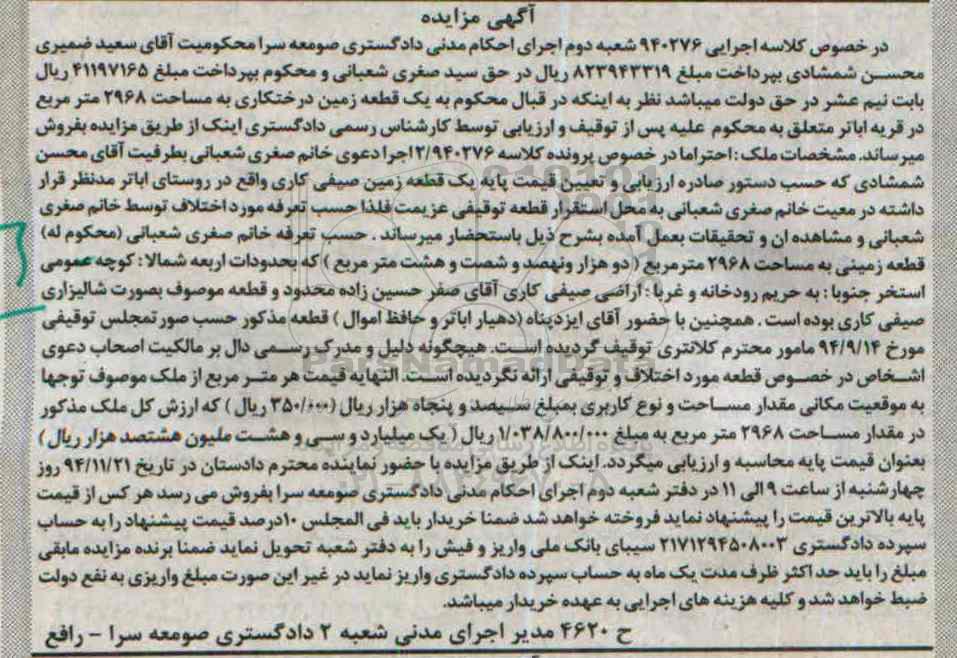 آگهی مزایده
در خصوص کلاسه اجرایی ۹۴۰۲۷۶ شعبه دوم اجرای احکام مدنی دادگستری صومعه سرا محکومیت آقای سعید ضمیری
محسن شمشادی بپرداخت مبلغ ۸۲۳۹۴۳۳۱۹ ریال در حق سید صغری شعبانی و محکوم بپرداخت مبلغ ۴۱۱۹۷۱۶۵ ریال
بابت نیم عشر در حق دولت میباشد نظر به اینکه در قبال محکوم به یک قطعه زمین درختکاری به مساحت ۲۹۶۸ متر مربع
در قریه اباتر متعلق به محکوم علیه پس از توقیف و ارزیابی توسط کارشناس رسمی دادگستری اینک از طریق مزایده بفروش
میرساند. مشخصات ملک : احتراما در خصوص پرونده کلاسه ۲/۹۴۰۲۷۶ اجرا دعوی خانم صغری شعبانی بطرفیت آقای محسن
شمشادی که حسب دستور صادره ارزیابی و تعیین قیمت پایه یک قطعه زمین صیفی کاری واقع در روستای اباتر مدنظر قرار
داشته در معیت خانم صغری شعبانی به محل استقرار قطعه توقیفی عزیمت فلذا حسب تعرفه مورد اختلاف توسط خانم صغری
شعبانی و مشاهده ان و تحقیقات بعمل آمده بشرح ذیل باستحضار میرساند . حسب تعرفه خانم صغری شعبانی (محکوم له)
قطعه زمینی به مساحت ۲۹۶۸ مترمربع ( دو هزار ونهصد و شصت و هشت متر مربع ) که بحدودات اربعه شمالا : کوچه عمومی
استخر جنوبا : به حریم رودخانه و غربا : اراضی صیفی کاری آقای صفر حسین زاده محدود و قطعه موصوف بصورت شالیزاری
صیفی کاری بوده است . همچنین با حضور آقای ایزدپناه (دهیار اباتر و حافظ اموال ) قطعه مذکور حسب صورتمجلس توقیفی
مورخ ۹۴/۹/۱۴ مامور محترم کلانتری توقیف گردیده است. هیچگونه دلیل و مدرک رسمی دال بر مالکیت اصحاب دعوی
اشخاص در خصوص قطعه مورد اختلاف و توقیفی ارائه نگردیده است. النهایه قیمت هر متر مربع از ملک موصوف توجها
به موقعیت مکانی مقدار مساحت و نوع کاربری بمبلغ سیصد و پنجاه هزار ریال (۳۵۰/۰۰۰ ریال ) که ارزش کل ملک مذکور
در مقدار مساحت ۲۹۶۸ متر مربع به مبلغ ۱/۰۳۸/۸۰۰/۰۰۰ ریال ( یک میلیارد و سی و هشت ملیون هشتصد هزار ریال )
بعنوان قیمت پایه محاسبه و ارزیابی میگردد. اینک از طریق مزایده با حضور نماینده محترم دادستان در تاریخ ۹۴/۱۱/۲۱ روز
چهارشنبه از ساعت ۹ الی ۱۱ در دفتر شعبه دوم اجرای احکام مدنی دادگستری صومعه سرا بفروش می رسد هر کس از قیمت
پایه بالاترین قیمت را پیشنهاد نماید فروخته خواهد شد ضمنا خریدار باید فی المجلس ۱۰درصد قیمت پیشنهاد را به حساب
سپرده دادگستری ۲۱۷۱۲۹۴۵۰۸۰۰۳ سیبای بانک ملی واریز و فیش را به دفتر شعبه تحویل نماید ضمنا برنده مزایده مابقی
مبلغ را باید حداکثر ظرف مدت یک ماه به حساب سپرده دادگستری واریز نماید در غیر این صورت مبلغ واریزی به نفع دولت
ضبط خواهد شد و کلیه هزینه های اجرایی به عهده خریدار میباشد.
ح ۴۶۲۰ مدیر اجرای مدنی شعبه ۲ دادگستری صومعه سرا – رافع